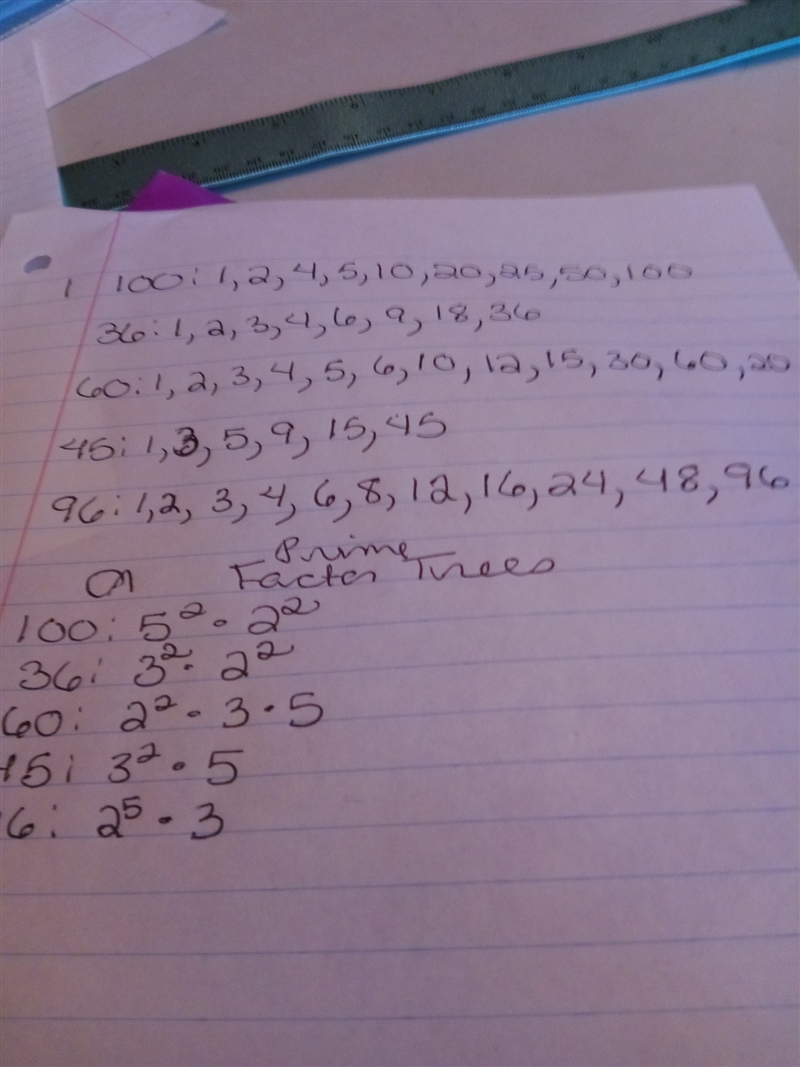 1 100: 1, 2, 4, 5, 10, 20, 25, 50, 100
36: 1, 2, 3, 4, 6, 9, 18, 36
60: 1, 2, 3, 4, 5, 6, 10, 12, 15, 30, 60, 20
45: 1, 3, 5, 9, 15, 45
96: 1, 2, 3, 4, 6, 8, 12, 16, 24, 48, 96
Prime
Or Factor Trees
100: 5² · 2²
36: 3² · 2²
60: 2² · 3 · 5
45: 3² · 5
6: 2⁵ · 3